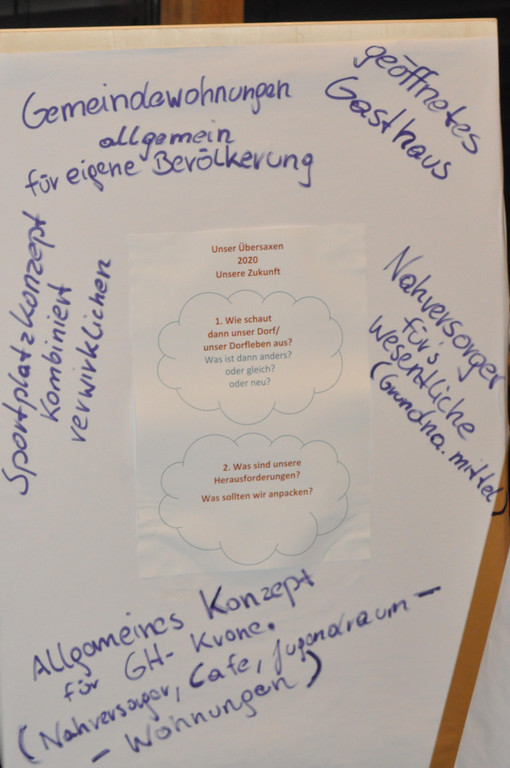 Gemeindewohnungen
allgemein
für eigene Bevölkerung
geöffnetes
Gasthaus
Sportplatzkonzept
kombiniert
verwirklichen
Unser Übersaxen
2020
Unsere Zukunft
1. Wie schaut
dann unser Dorf/
unser Dorfleben aus?
Was ist dann anders?
oder gleich?
oder neu?
2. Was sind unsere
Herausforderungen?
Was sollten wir anpacken?
Nahversorger
für's
Wesentliche
(Grundna.mittel)
Allgemeines Konzept
für GH- Krone.
(Nahversorger, Cafe, Jugendraum -
- Wohnungen)